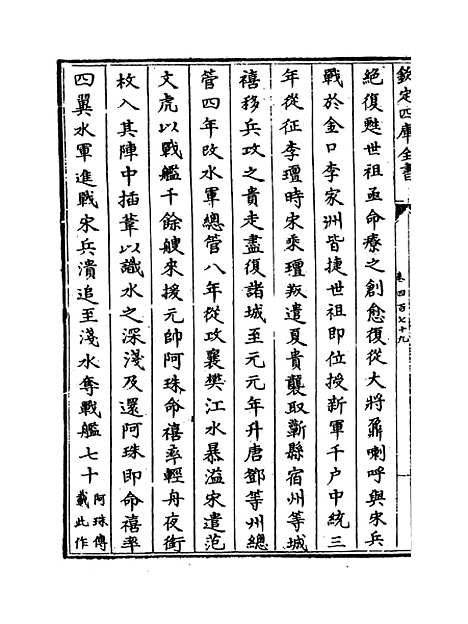 欽定四庫全書
卷四百七十九
絶復甦世祖亟命療之創愈復從大將鼐喇呼與宋兵
戰於金口李家洲皆捷世祖即位授新軍千户中統三
年從征李璮時宋乘璮叛遣夏貴襲取蘄縣宿州等城
禧移兵攻之貴走盡復諸城至元元年升唐鄧等州總
管四年改水軍總管八年從攻襄樊江水暴溢宋遣范
文虎以戰艦千餘艘來援元帥阿珠命禧率輕舟夜銜
枚入其陣中插葦以識水之深淺及還阿珠即命禧率
四翼水軍進戰宋兵潰追至淺水奪戰艦七十
阿珠傳
載此作